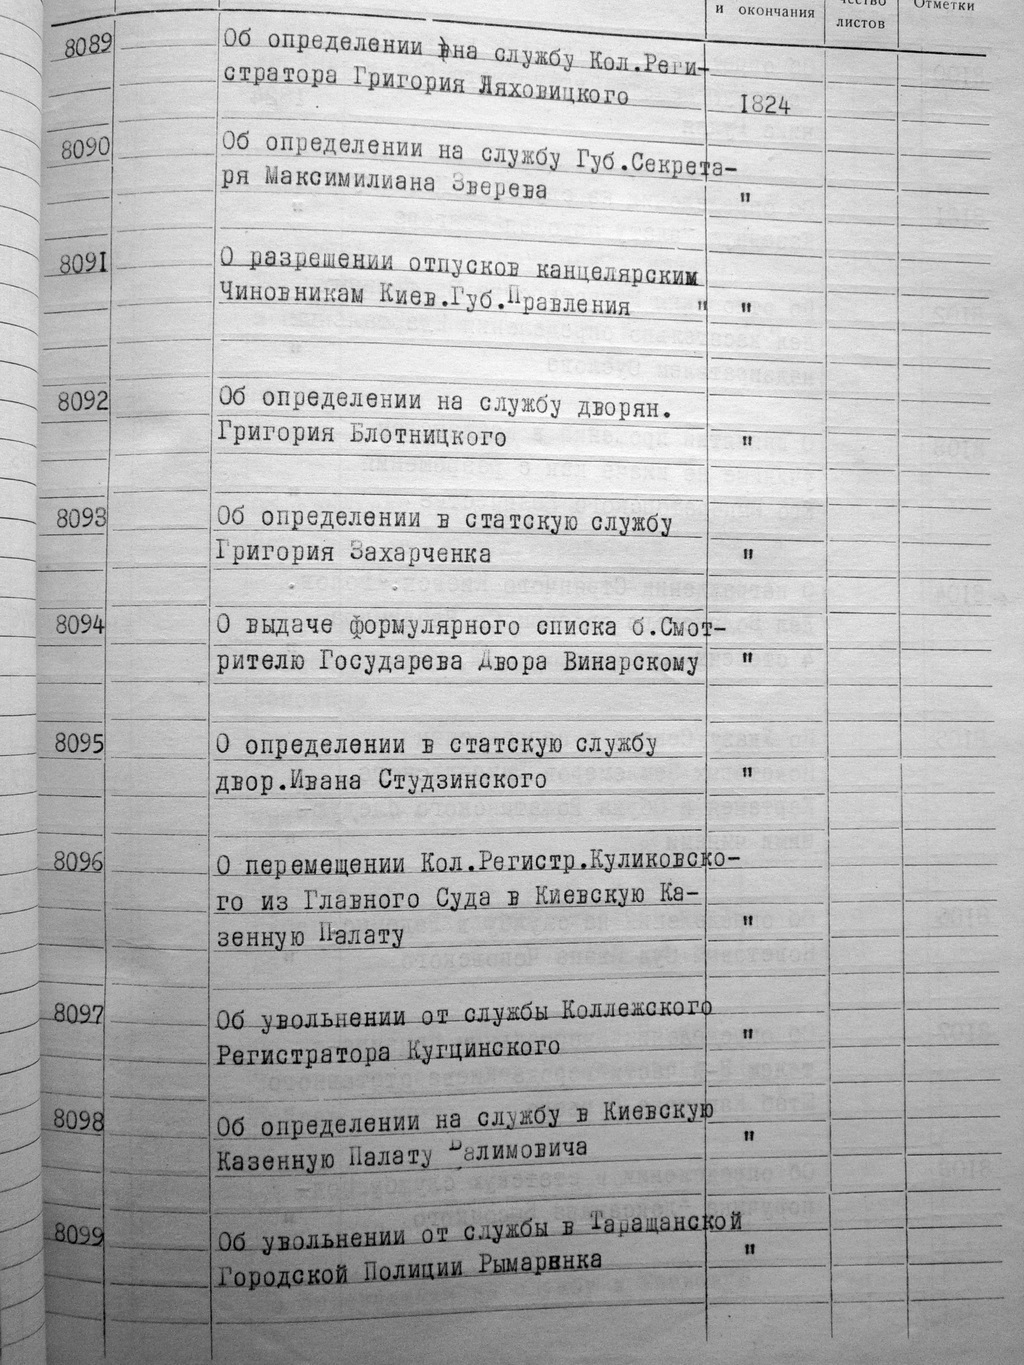 и окончания
чество
листов
Отметки
8089 Об определении на службу Кол.Реги-
стратора Григория Ляховицкого 1824
8090 Об определении на службу Губ.Секрета-
ря Максимилиана Зверева "
8091 О разрешении отпусков канцелярским
Чиновникам Киев.Губ.Правления " "
8092 Об определении на службу дворян.
Григория Блотницкого "
8093 Об определении в статскую службу
Григория Захарченка "
8094 О выдаче формулярного списка б.Смот-
рителю Государева Двора Винарскому "
8095 О определении в статскую службу
двор.Ивана Студзинского "
8096 О перемещении Кол.Регистр.Куликовско-
го из Главного Суда в Киевскую Ка-
зенную Палату "
8097 Об увольнении от службы Коллежского
Регистратора Кугцинского "
8098 Об определении на службу в Киевскую
Казенную Палату Валимовича "
8099 Об увольнении от службы в Таращанской
Городской Полиции Рымаренка "